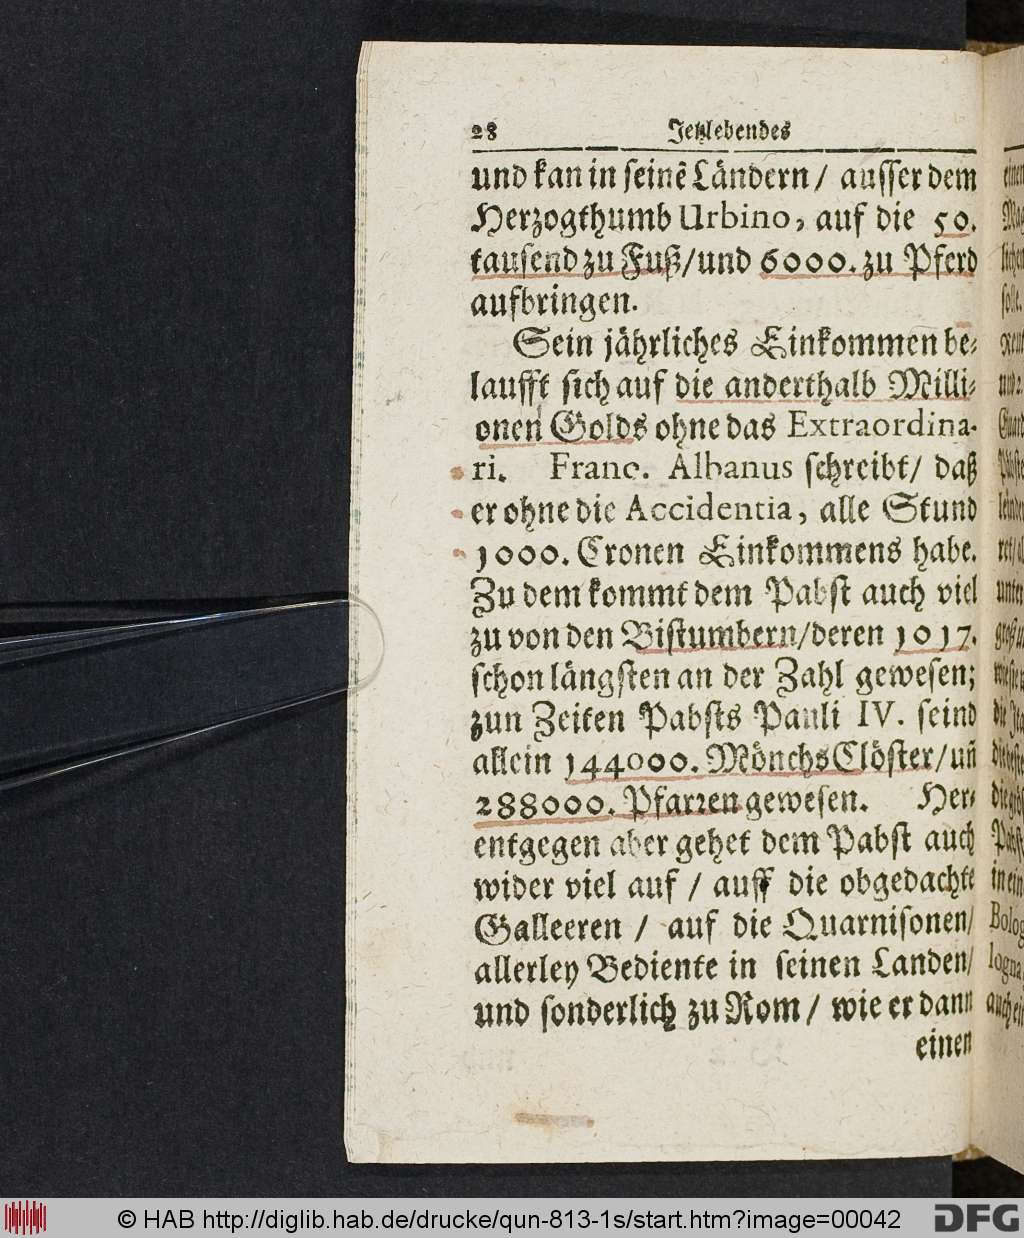 28 Jetzlebendes
und kan in seinē Ländern / ausser dem
Herzogthumb Urbino, auf die 50.
tausend zu Fuß/und 6000. zu Pferd
aufbringen.
Sein jährliches Einkommen be-
laufft sich auf die anderthalb Milli-
onen Golds ohne das Extraordina-
ri. Franc. Albanus schreibt/ daß
er ohne die Accidentia, alle Stund
1000. Cronen Einkommens habe.
Zu dem kommt dem Pabst auch viel
zu von den Bistumbern/deren 1017.
schon längsten an der Zahl gewesen;
zun Zeiten Pabsts Pauli IV. seind
allein 144000. Mönchs Clöster/uñ
288000. Pfarren gewesen. Her-
entgegen aber gehet dem Pabst auch
wider viel auf / auff die obgedachte
Galleeren / auf die Quarnisonen/
allerley Bediente in seinen Landen/
und sonderlich zu Rom / wie er dann
einen
© HAB http://diglib.hab.de/drucke/qun-813-1s/start.htm?image=00042
DFG